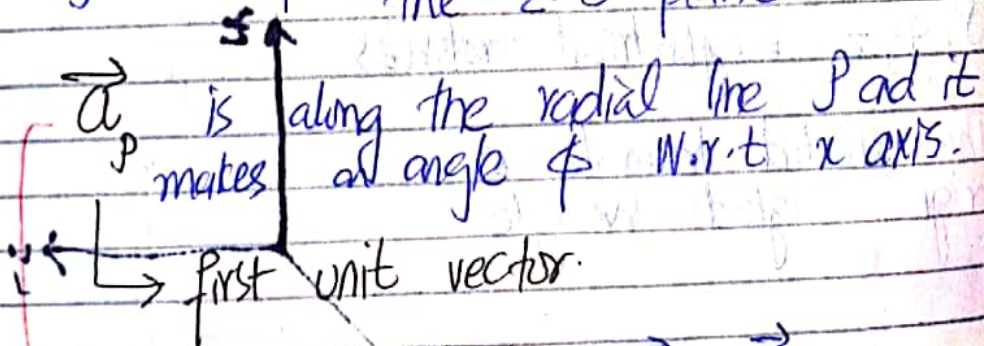 the
z
a⃗ρ is along the radial line ρ ad it
makes an angle ϕ W.r.t x axis.
first unit vector.